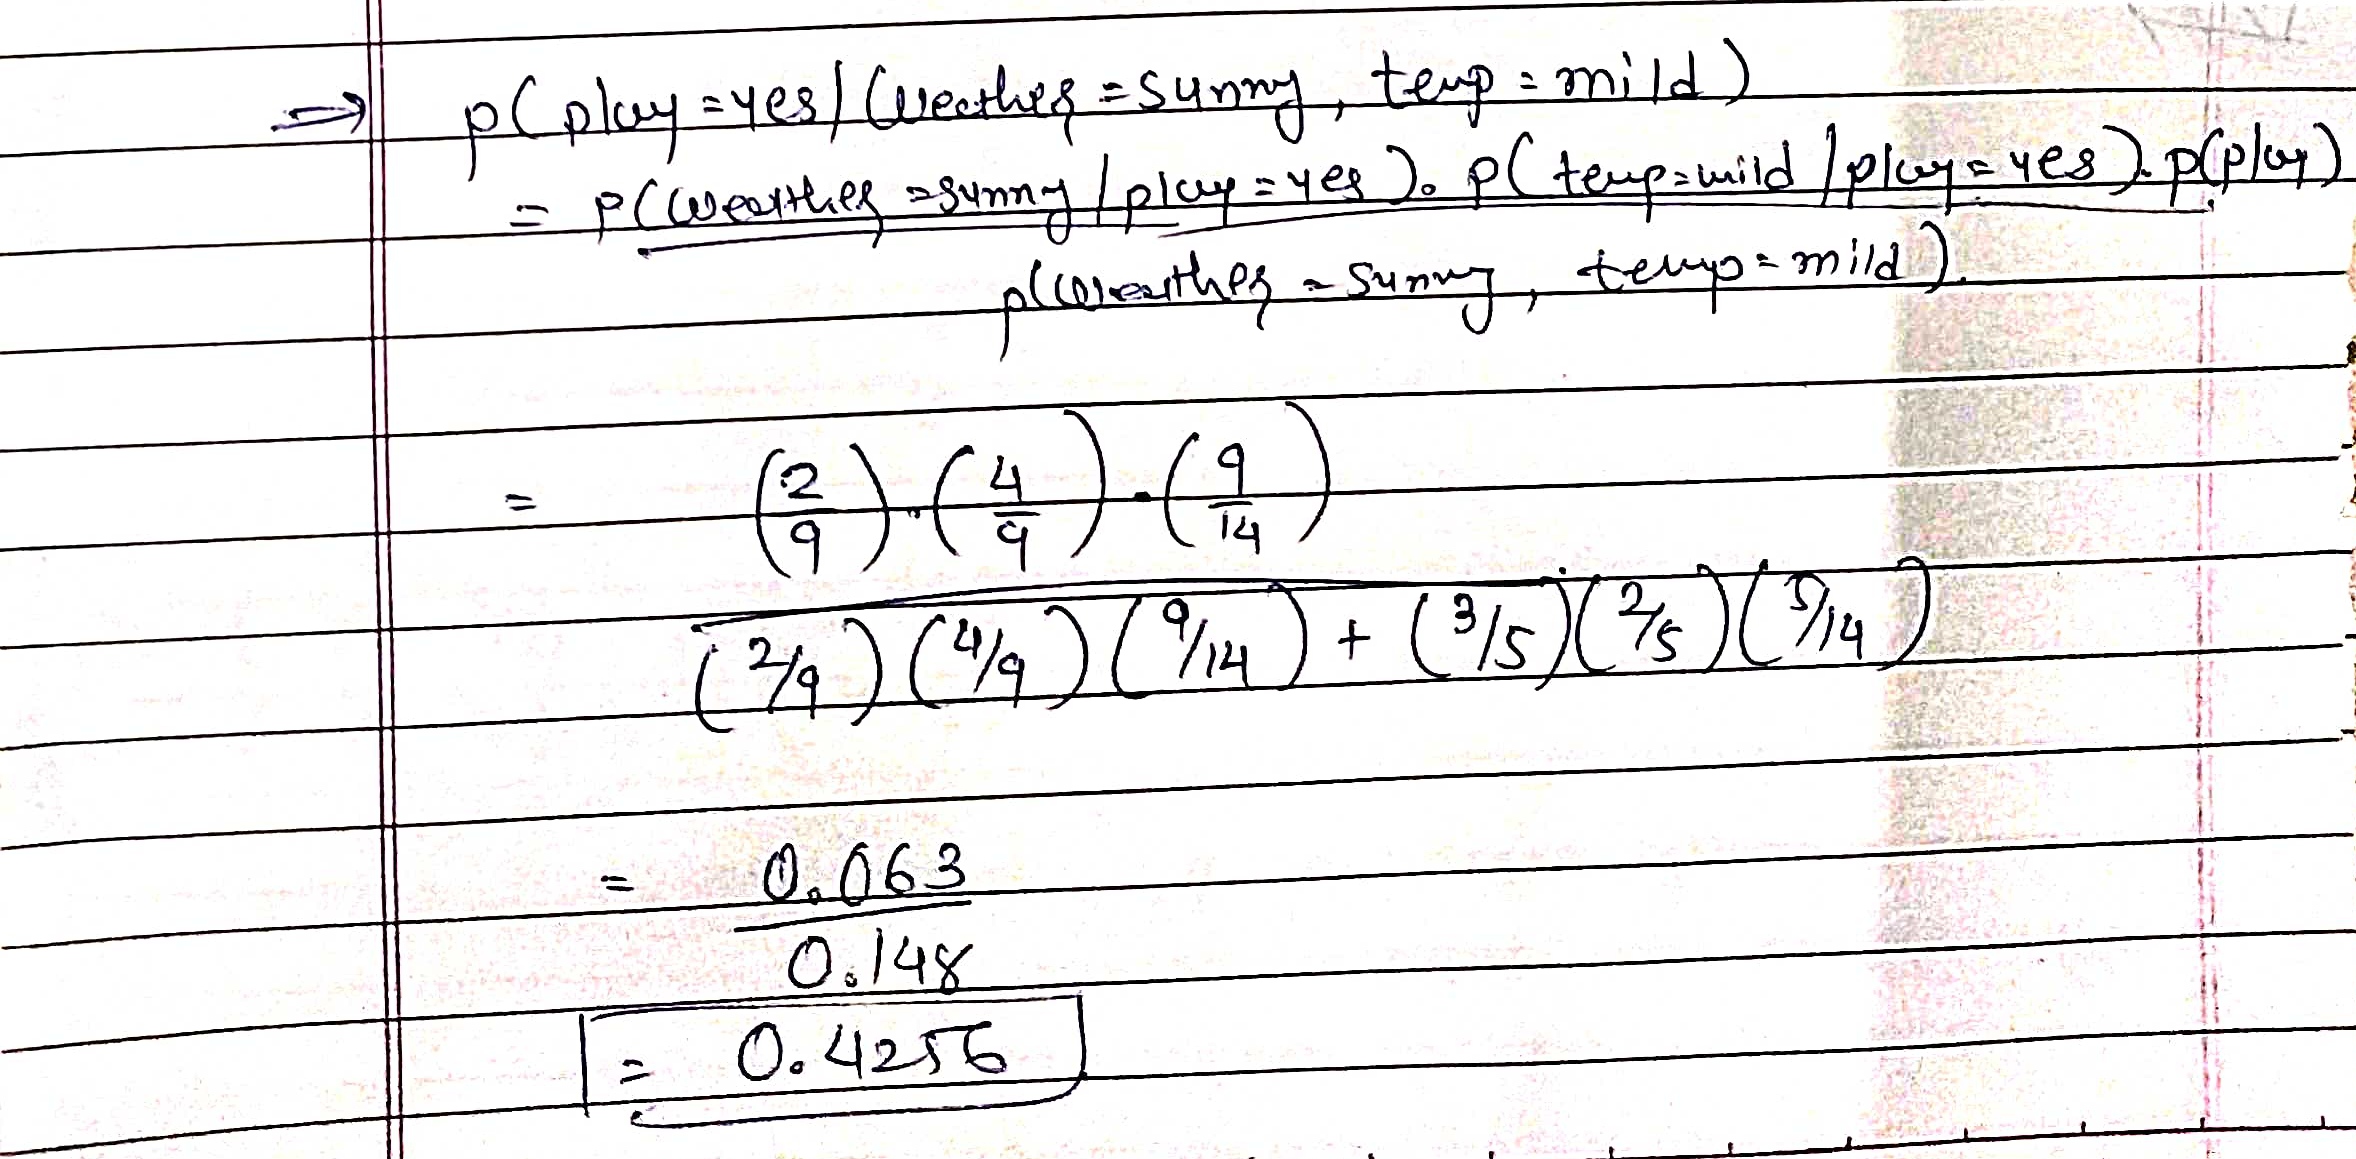 ⇒ p(play=yes/(Weather=sunny, temp=mild)
= p(weather=sunny/play=yes). p(temp=mild/play=yes). p(play)
p(weather=sunny, temp=mild).
= (2/9).(4/9).(9/14)
(2/9)(4/9)(9/14)+(3/5)(2/5)(5/14)
= 0.063
0.148
= 0.4256